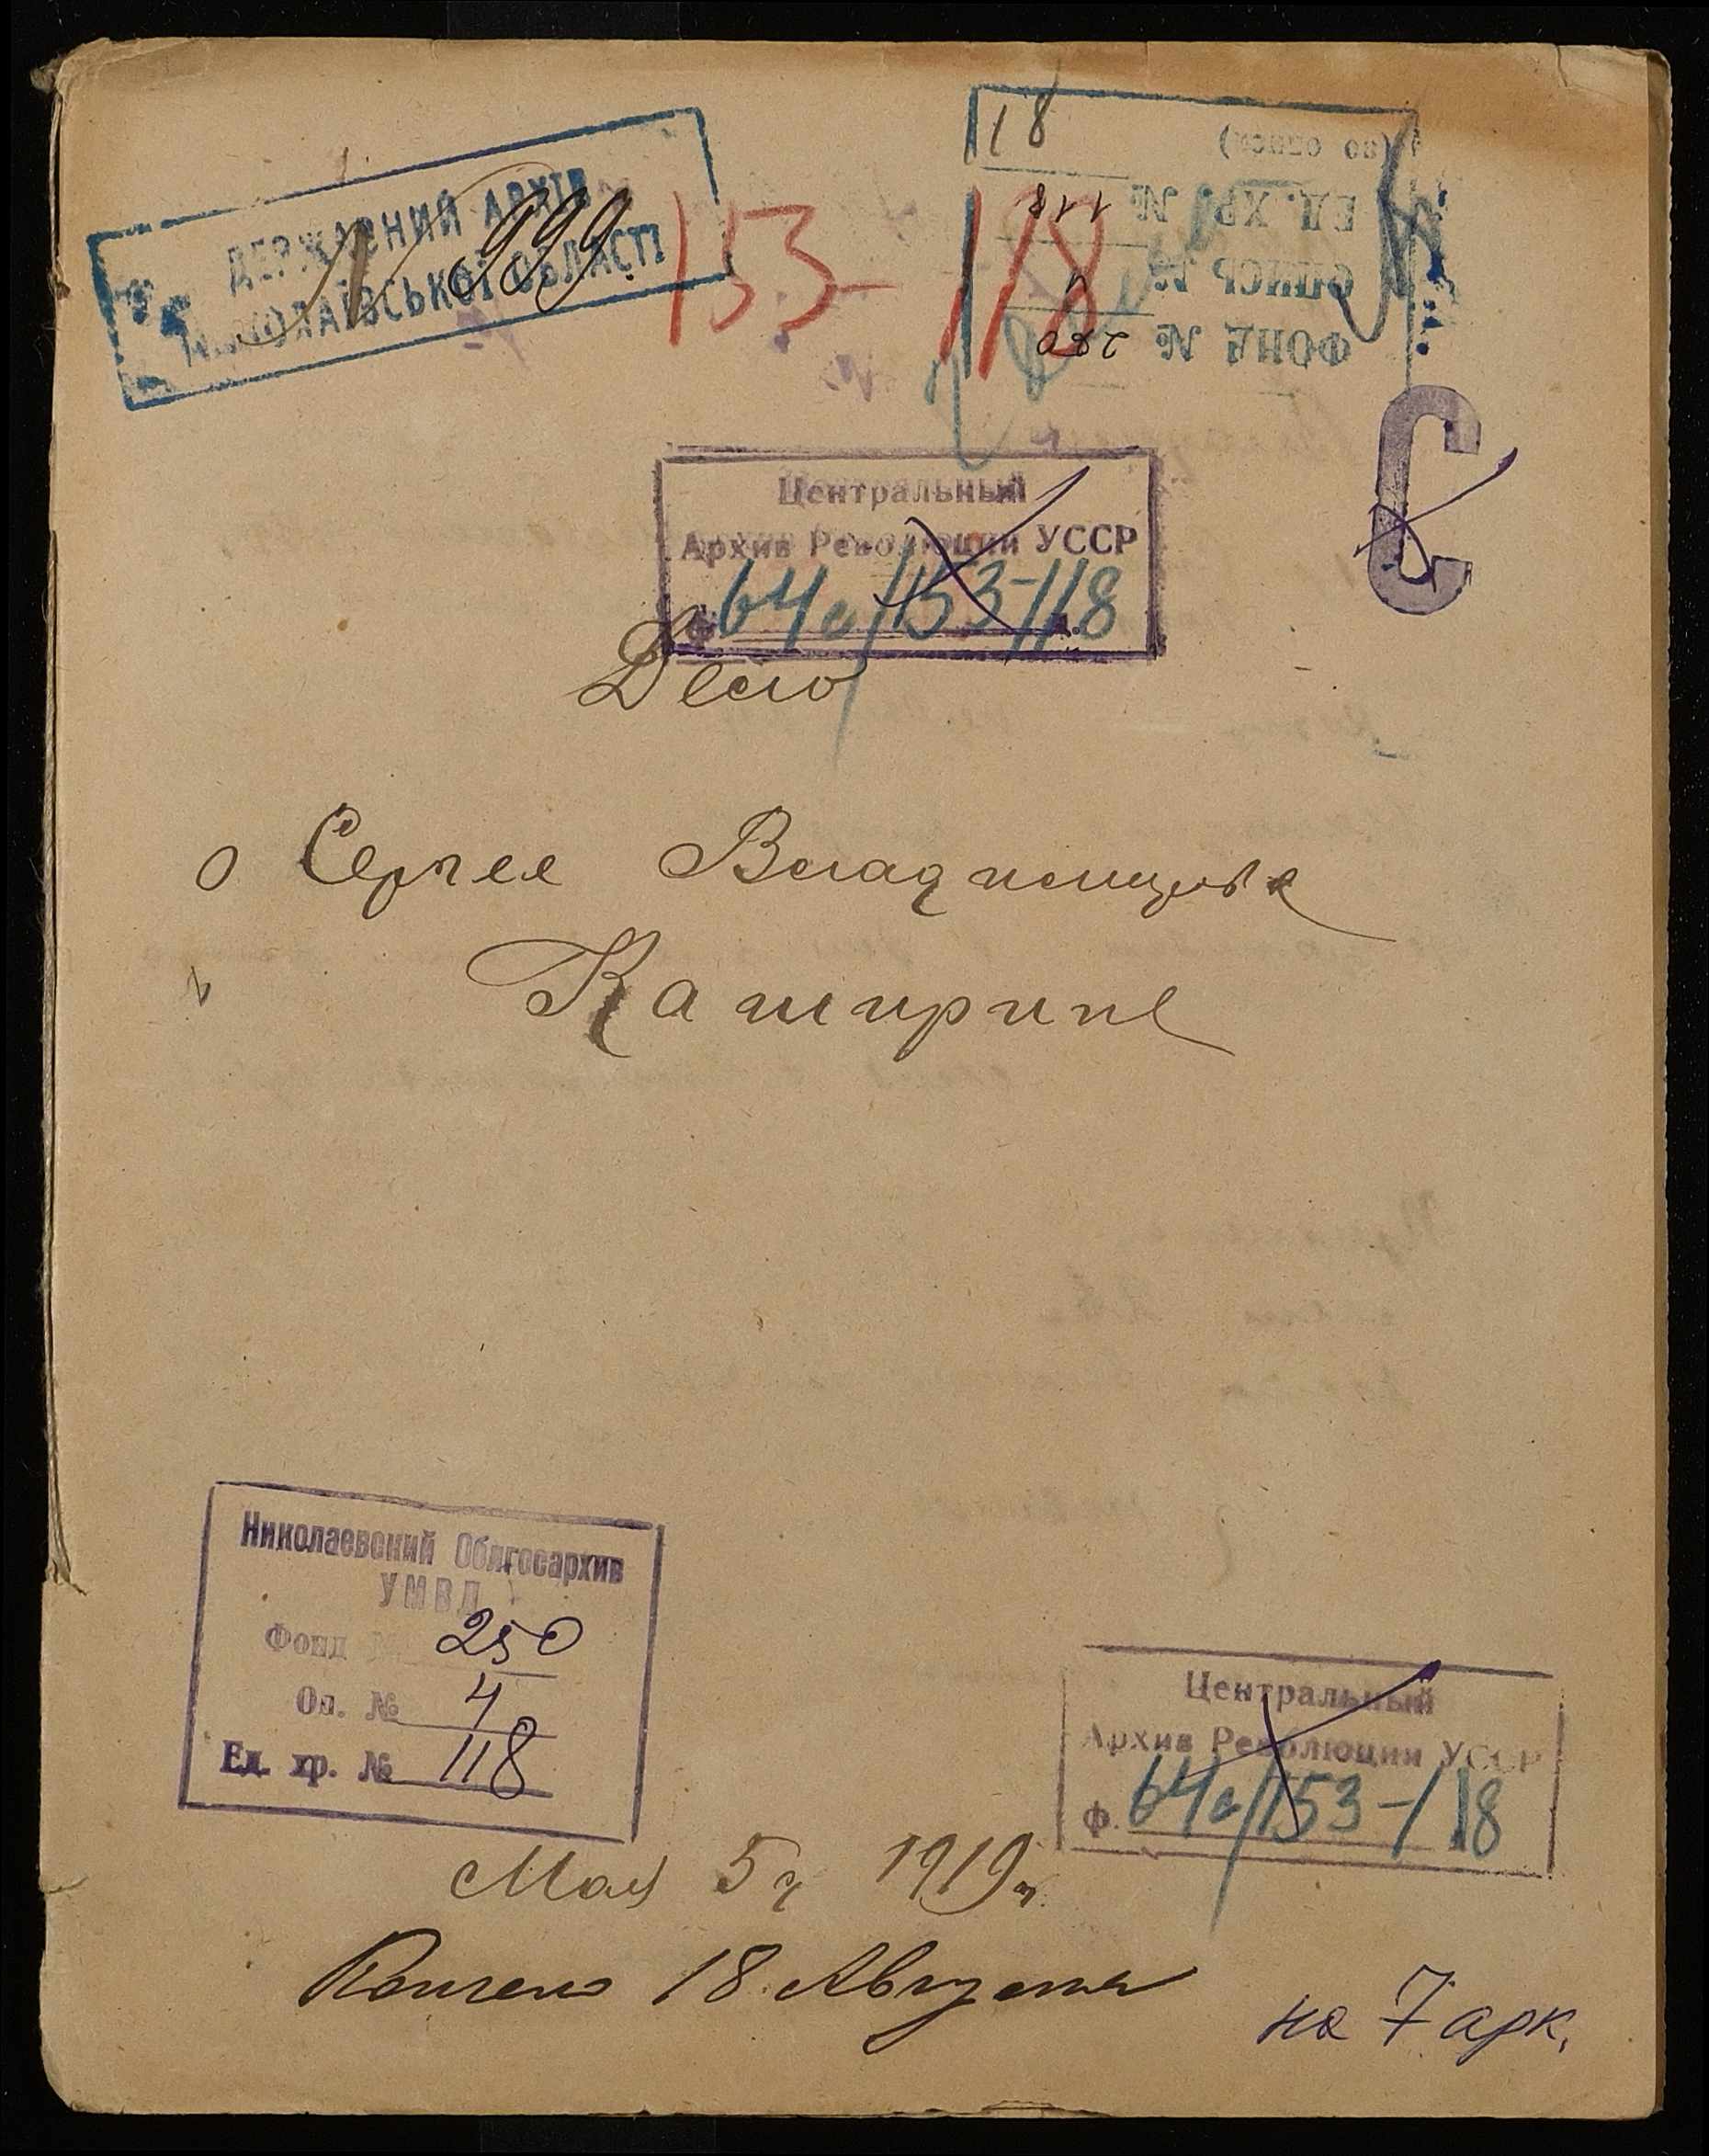 ДЕРЖАВНИЙ АРХІВ
МИКОЛАЇВСЬКОЇ ОБЛАСТІ
999
153-118
18
(по описи)
ЕД. ХР. № 118
ОПИСЬ № 4
ФОНД № 250
С
Центральный
Архив Революции УССР
ф. 64с/153-118
Дело
о Сергее Владимирове
Каширине
Николаевский Облгосархив
УМВД
Фонд № 250
Оп. № 4
Ед. хр. № 118
Центральный
Архив Революции УССР
Ф. 64с/153-118
Мая 5 1919 г.
Кончено 18 Августа
на 7 арк.